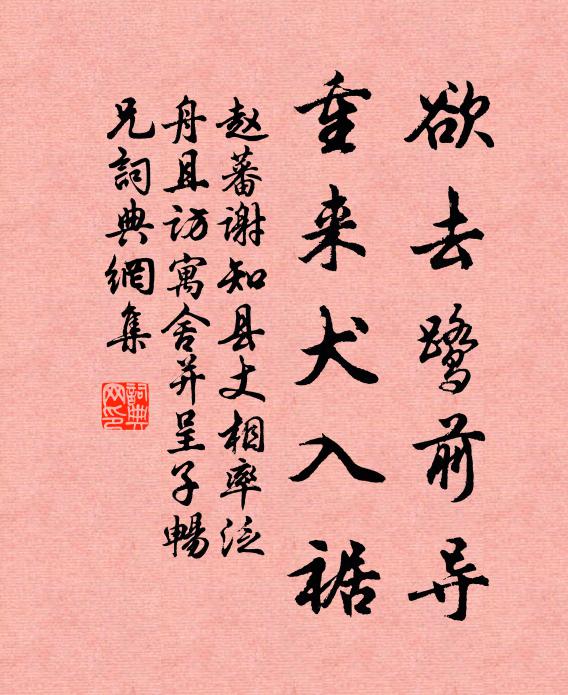 欲去鹭前导
重来犬入裾
赵蕃谢知县丈相率泛
舟且访寓舍并呈子畅
兄詞典網集
詞典
网印